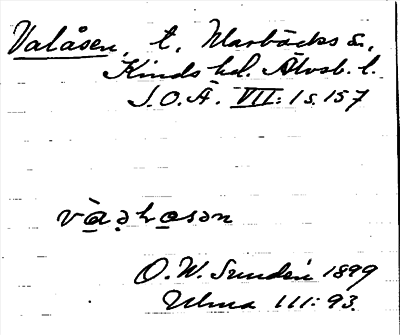 Valåsen, t, Marbäcks sn,
Kinds hd. Älvsb. l.
S.O.Ä. VII: 1 s. 157
O.W. Sundén 1899
Ulma III: 93.